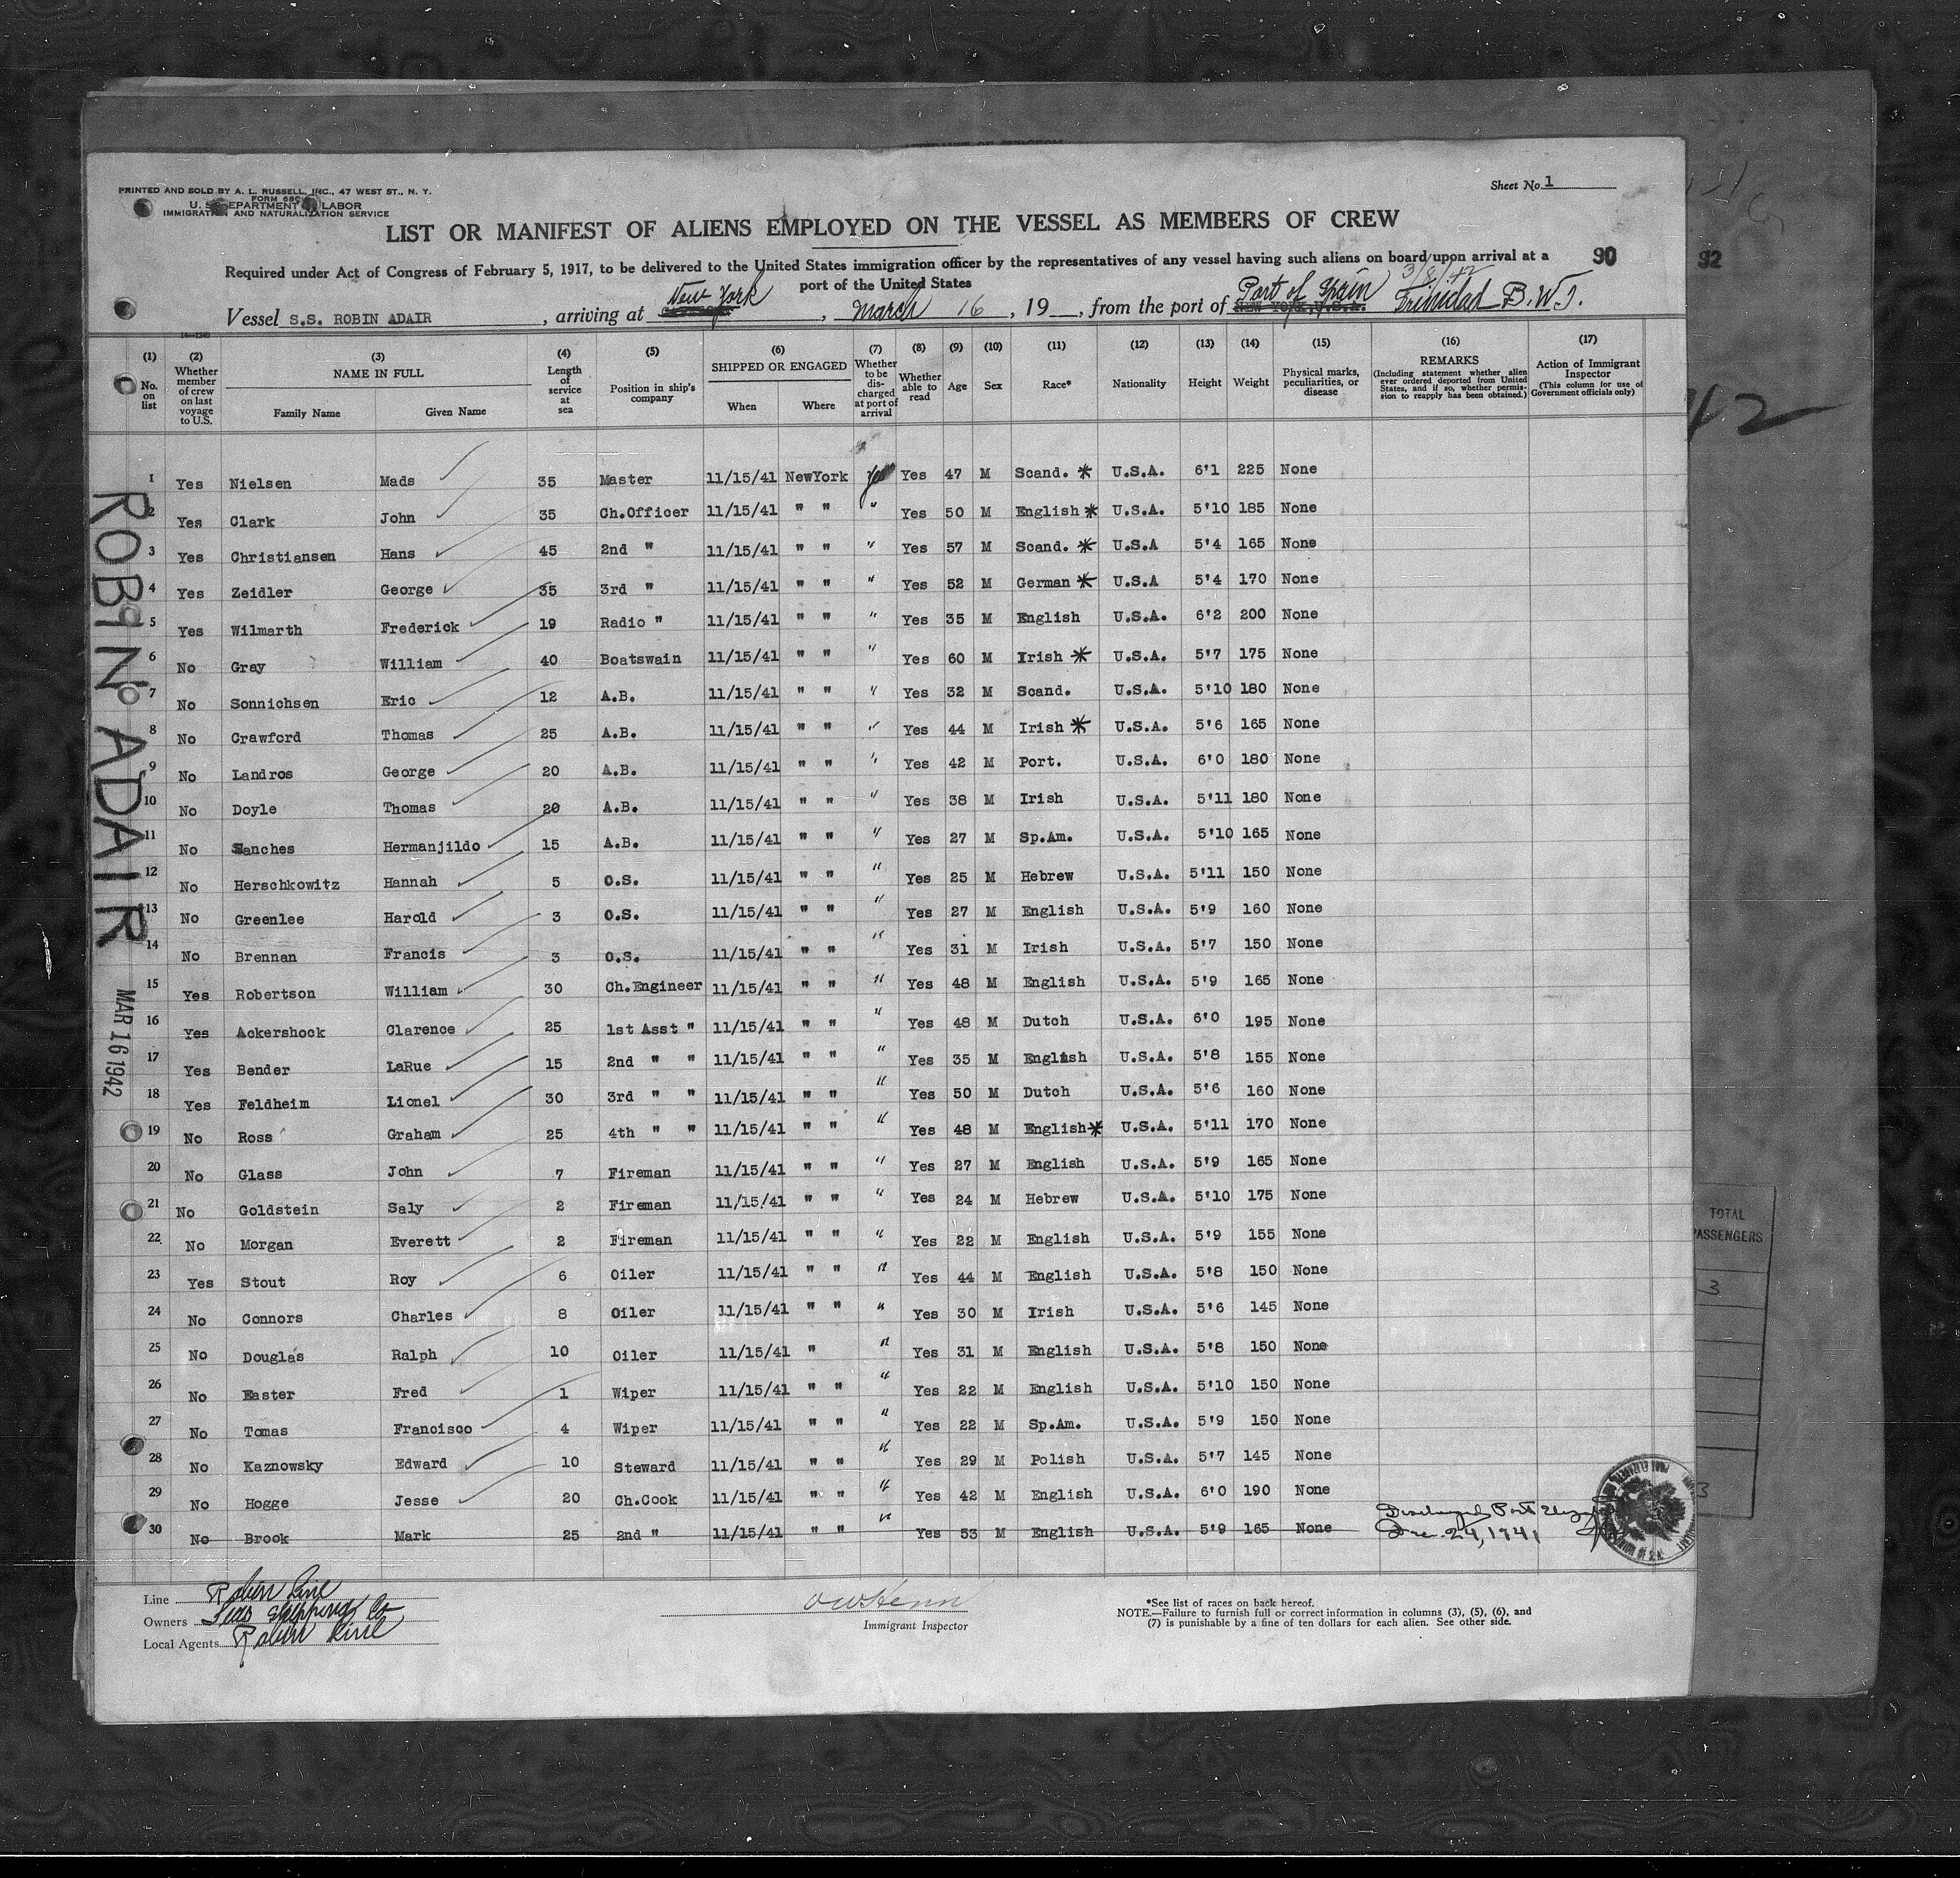 PRINTED AND SOLD BY A. L. RUSSELL, INC., 47 WEST ST., N. Y.
FORM 689
U. S. DEPARTMENT OF LABOR
IMMIGRATION AND NATURALIZATION SERVICE
Sheet No. 1
LIST OR MANIFEST OF ALIENS EMPLOYED ON THE VESSEL AS MEMBERS OF CREW
90
92
Required under Act of Congress of February 5, 1917, to be delivered to the United States immigration officer by the representatives of any vessel having such aliens on board upon arrival at a
port of the United States
3/8/42
Vessel S.S. ROBIN ADAIR, arriving at New York, March 16, 19__, from the port of Port of Spain Trinidad B.W.I.
NEW YORK, U.S.A.
(1) No. on list
(2) Whether member of crew on last voyage to U.S.
(3) NAME IN FULL Family Name Given Name
(4) Length of service at sea
(5) Position in ship's company
(6) SHIPPED OR ENGAGED When Where
(7) Whether to be discharged at port of arrival
(8) Whether able to read
(9) Age
(10) Sex
(11) Race*
(12) Nationality
(13) Height
(14) Weight
(15) Physical marks, peculiarities, or disease
(16) REMARKS (Including statement whether alien ever ordered deported from United States, and if so, whether permission to reapply has been obtained.)
(17) Action of Immigrant Inspector (This column for use of Government officials only)
1 Yes Nielsen Mads 35 Master 11/15/41 NewYork Yes Yes 47 M Scand. * U.S.A. 6'1 225 None
2 Yes Clark John 35 Ch.Officer 11/15/41 " " " Yes 50 M English * U.S.A. 5'10 185 None
3 Yes Christiansen Hans 45 2nd " 11/15/41 " " " Yes 57 M Scand. * U.S.A 5'4 165 None
4 Yes Zeidler George 35 3rd " 11/15/41 " " " Yes 52 M German * U.S.A 5'4 170 None
5 Yes Wilmarth Frederick 19 Radio " 11/15/41 " " " Yes 35 M English U.S.A. 6'2 200 None
6 No Gray William 40 Boatswain 11/15/41 " " " Yes 60 M Irish * U.S.A. 5'7 175 None
7 No Sonnichsen Eric 12 A.B. 11/15/41 " " " Yes 32 M Scand. U.S.A. 5'10 180 None
8 No Crawford Thomas 25 A.B. 11/15/41 " " " Yes 44 M Irish * U.S.A. 5'6 165 None
9 No Landros George 20 A.B. 11/15/41 " " " Yes 42 M Port. U.S.A. 6'0 180 None
10 No Doyle Thomas 20 A.B. 11/15/41 " " " Yes 38 M Irish U.S.A. 5'11 180 None
11 No Sanches Hermanjildo 15 A.B. 11/15/41 " " " Yes 27 M Sp.Am. U.S.A. 5'10 165 None
12 No Herschkowitz Hannah 5 O.S. 11/15/41 " " " Yes 25 M Hebrew U.S.A. 5'11 150 None
13 No Greenlee Harold 3 O.S. 11/15/41 " " " Yes 27 M English U.S.A. 5'9 160 None
14 No Brennan Francis 3 O.S. 11/15/41 " " " Yes 31 M Irish U.S.A. 5'7 150 None
15 Yes Robertson William 30 Ch.Engineer 11/15/41 " " " Yes 48 M English U.S.A. 5'9 165 None
16 Yes Ackershock Clarence 25 1st Asst " 11/15/41 " " " Yes 48 M Dutch U.S.A. 6'0 195 None
17 Yes Bender LaRue 15 2nd " " 11/15/41 " " " Yes 35 M English U.S.A. 5'8 155 None
18 Yes Feldheim Lionel 30 3rd " " 11/15/41 " " " Yes 50 M Dutch U.S.A. 5'6 160 None
19 No Ross Graham 25 4th " " 11/15/41 " " " Yes 48 M English* U.S.A. 5'11 170 None
20 No Glass John 7 Fireman 11/15/41 " " " Yes 27 M English U.S.A. 5'9 165 None
21 No Goldstein Saly 2 Fireman 11/15/41 " " " Yes 24 M Hebrew U.S.A. 5'10 175 None
22 No Morgan Everett 2 Fireman 11/15/41 " " " Yes 22 M English U.S.A. 5'9 155 None
23 Yes Stout Roy 6 Oiler 11/15/41 " " " Yes 44 M English U.S.A. 5'8 150 None
24 No Connors Charles 8 Oiler 11/15/41 " " " Yes 30 M Irish U.S.A. 5'6 145 None
25 No Douglas Ralph 10 Oiler 11/15/41 " " Yes 31 M English U.S.A. 5'8 150 None
26 No Easter Fred 1 Wiper 11/15/41 " " " Yes 22 M English U.S.A. 5'10 150 None
27 No Tomas Francisco 4 Wiper 11/15/41 " " " Yes 22 M Sp.Am. U.S.A. 5'9 150 None
28 No Kaznowsky Edward 10 Steward 11/15/41 " " " Yes 29 M Polish U.S.A. 5'7 145 None
29 No Hogge Jesse 20 Ch.Cook 11/15/41 " " " Yes 42 M English U.S.A. 6'0 190 None
30 No Brook Mark 25 2nd " 11/15/41 " " " Yes 53 M English U.S.A. 5'9 165 None Discharged Port Dec. 24, 1941
ROBIN ADAIR
MAR 16 1942
TOTAL
PASSENGERS
3
3
42
Line Robin Line
Owners Seas Shipping Co
Local Agents Robin Line
Immigrant Inspector
*See list of races on back hereof.
NOTE.—Failure to furnish full or correct information in columns (3), (5), (6), and
(7) is punishable by a fine of ten dollars for each alien. See other side.